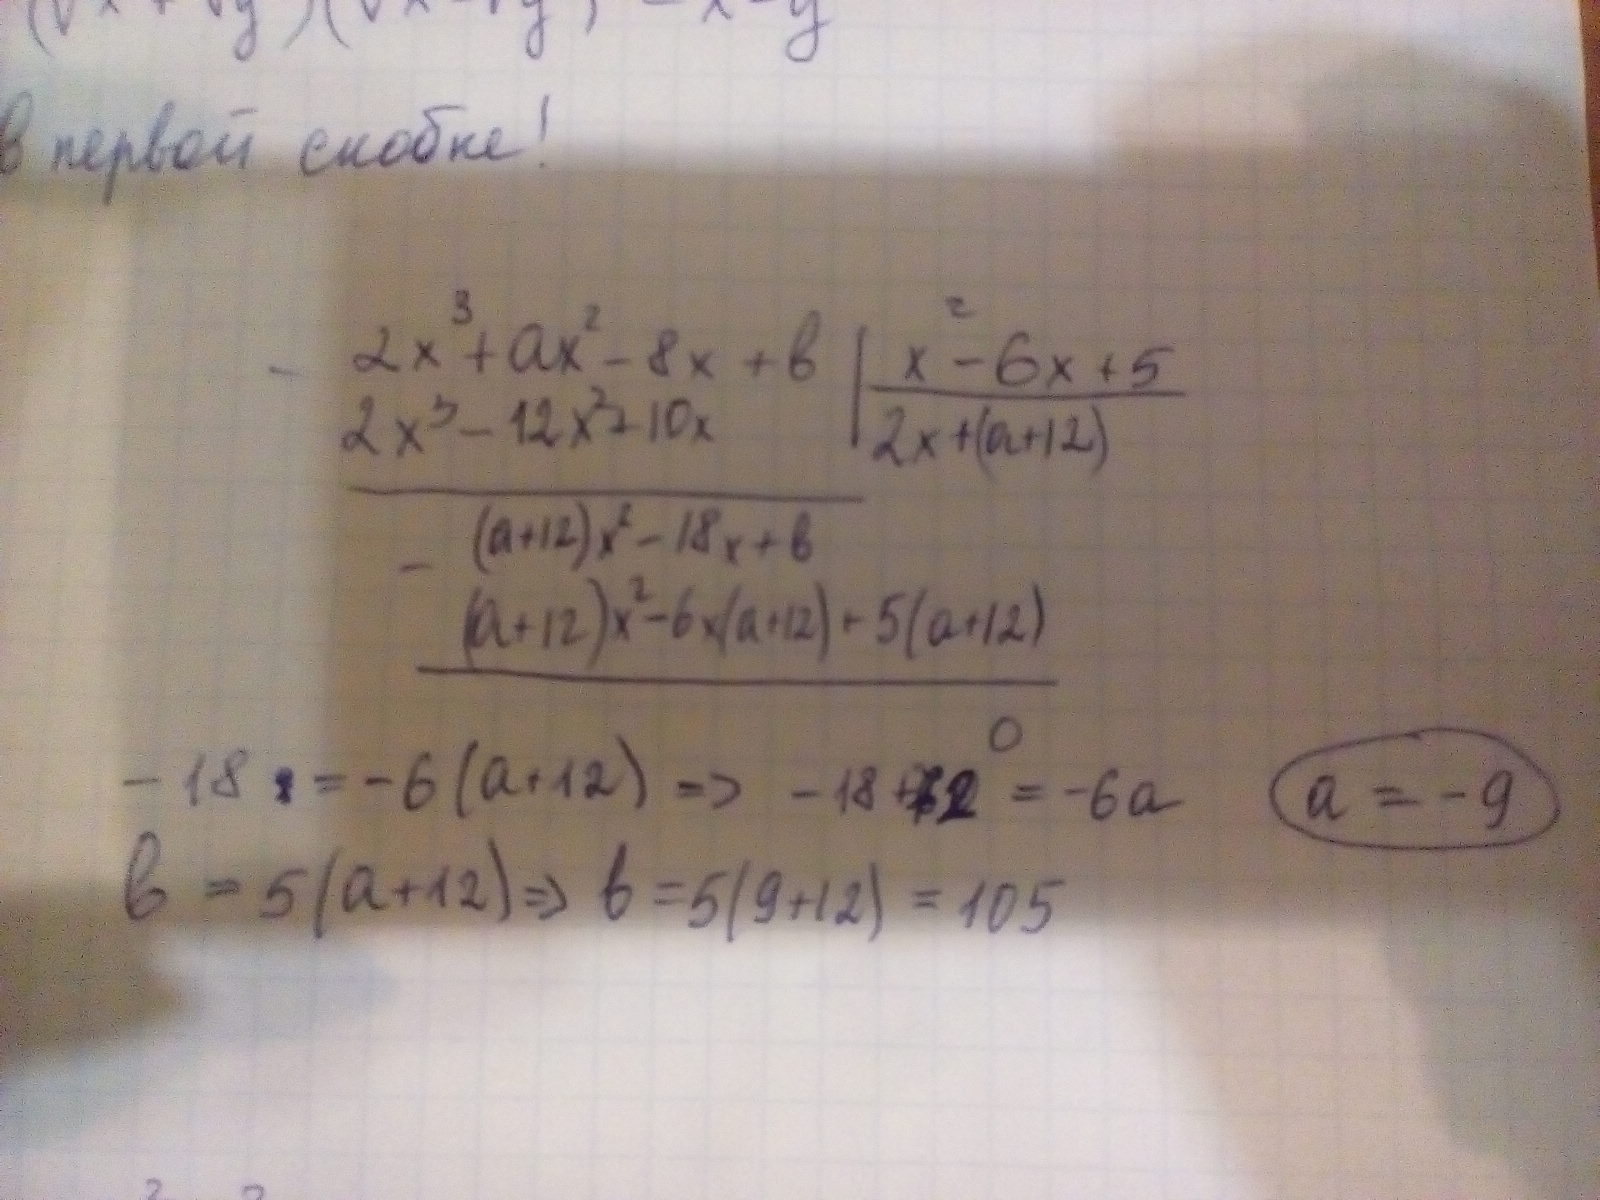 (√x + √y)(√x - √y) = x - y
в первой скобке!
- 2x³ + ax² - 8x + b | x² - 6x + 5
2x³ - 12x² + 10x | 2x + (a+12)
(a+12)x² - 18x + b
- (a+12)x² - 6x(a+12) + 5(a+12)
0
-18 = -6(a+12) => -18+72 = -6a a = -9
b = 5(a+12) => b = 5(9+12) = 105